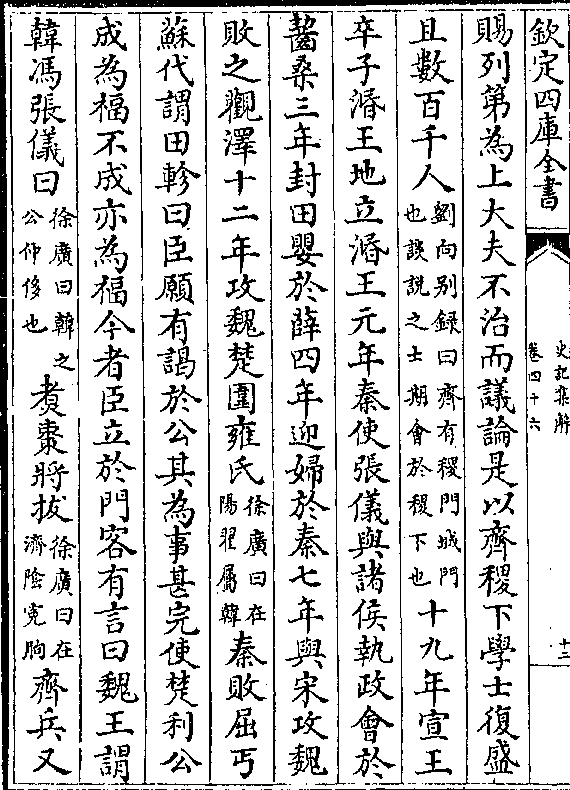 欽定四庫全書
史記集解
卷四十六
十三
賜列第為上大夫不治而議論是以齊稷下學士復盛
且數百千人劉向别錄曰齊有稷門城門也談説之士期會於稷下也十九年宣王
卒子湣王地立湣王元年秦使張儀與諸侯執政會於
齧桑三年封田嬰於薛四年迎婦於秦七年與宋攻魏
敗之觀澤十二年攻魏楚圍雍氏徐廣曰在陽翟屬韓秦敗屈丐
蘇代謂田軫曰臣願有謁於公其為事甚完使楚利公
成為福不成亦為福今者臣立於門客有言曰魏王謂
韓馮張儀曰徐廣曰韓之公仲侈也煑棗將拔徐廣曰在濟陰寃朐齊兵又